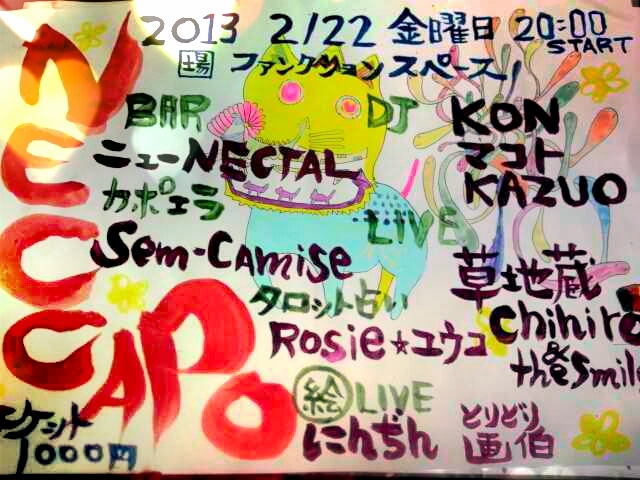 2013 2/22 金曜日 20:00
START
場 ファンクションスペース
NECCO
CAPO
BAR
ニューNECTAL
カポエラ
Sem-CAmise
DJ
KON
マコト
KAZUO
LIVE
草地蔵
chihiro
& the Smile
タロット占い
Rosie☆ユウコ
絵 LIVE
にんぢん
とりどり
画伯
チケット
1000円